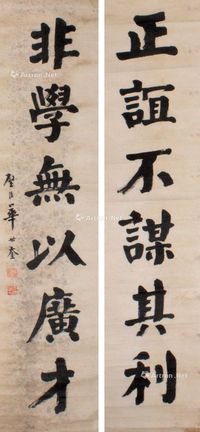 正誼不謀其利
非學無以廣才
華世奎
Artron.Net
Artron.Net